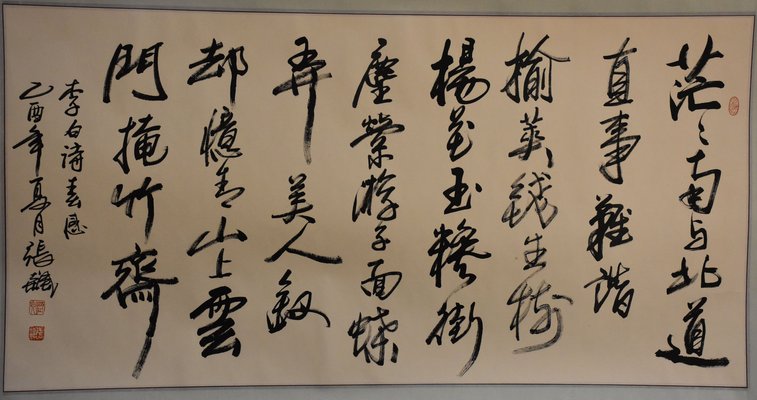 茫〻南与北道
直事難諧
榆莢錢生樹
楊花玉糝街
塵縈游子面蝶
弄美人釵
却憶青山上雲
門掩竹齋
李白詩春感
乙酉年夏月張